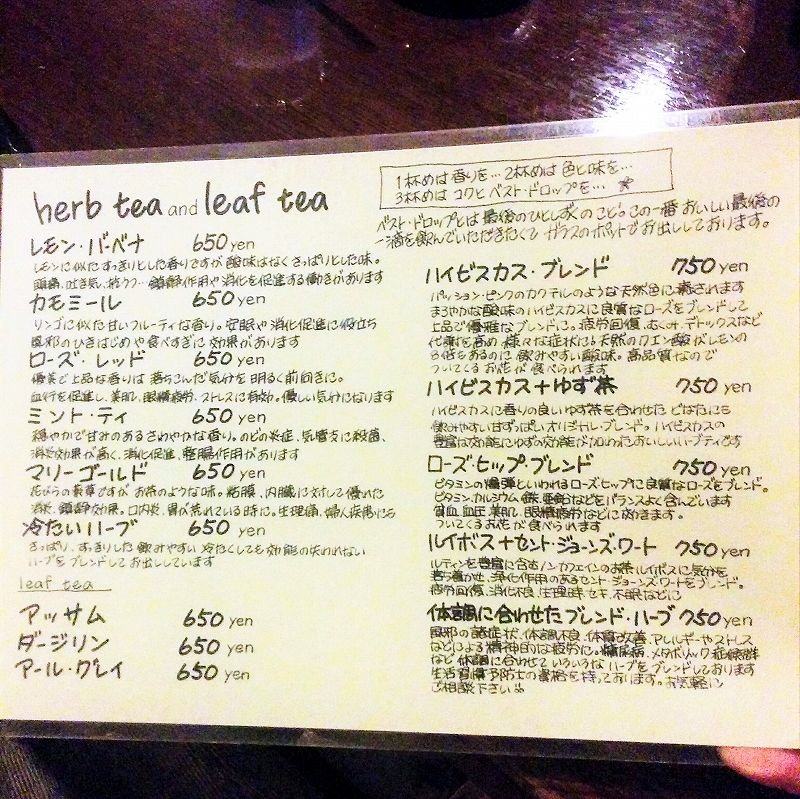 herb tea and leaf tea
1杯めは香りを… 2杯めは色と味を…
3杯めは コクと ベスト・ドロップを…
ベスト・ドロップとは 最後のひとしずくのこと。この一番おいしい最後の
一滴を飲んでいただきたくて ガラスのポットでお出ししております。
レモン・バーベナ 650 yen
レモンに似たすっきりとした香りですが 酸味はなく さっぱりとした味。
頭痛、吐き気、鎮静作用や消化を促進する働きがあります
カモミール 650 yen
リンゴに似た甘いフルーティな香り。安眠や消化促進に役立ち
風邪のひきはじめや食べすぎに 効果があります
ローズ・レッド 650 yen
優美で上品な香りは 落ちこんだ気分を 明るく前向きに。
血行を促進し、美肌、眼精疲労、ストレスに有効。優しい気分になります
ミント・ティ 650 yen
穏やかで甘みのあるさわやかな香り。のどの炎症、気管支に殺菌、
消炎効果が高く、消化促進、整腸作用があります
マリーゴールド 650 yen
花びらの薬草ですが お茶のような味。粘膜、内臓に対して優れた
消炎、鎮静効果。口内炎、胃が荒れている時に。生理痛、婦人疾患にも
冷たいハーブ 650 yen
さっぱり、すっきりした飲みやすい 冷たくしても効能の失われない
ハーブをブレンドしてお出ししています
leaf tea
アッサム 650 yen
ダージリン 650 yen
アール・グレイ 650 yen
ハイビスカス・ブレンド 750 yen
パッション・ピンクのカクテルのような 天然色に 癒されます
まろやかな酸味のハイビスカスに良質なローズをブレンドして
上品で優雅なブレンドに。疲労回復、むくみ、デトックスなど
代謝を高め 様々な症状に。天然のクエン酸がレモンの
倍もあるのに 飲みやすい酸味。高品質なので
ついてくるお花が 食べられます
ハイビスカス+ゆず茶 750 yen
ハイビスカスに香りの良いゆず茶を合わせた どなたにも
飲みやすい甘ずっぱいオリジナル・ブレンド。ハイビスカスの
豊富な効能にゆずの効能が加わったおいしいハーブティです
ローズ・ヒップ・ブレンド 750 yen
ビタミンの爆弾といわれるローズ・ヒップに良質なローズをブレンド。
ビタミン、カルシウム、鉄、亜鉛などをバランスよく含んでいます
貧血、血圧、美肌、眼精疲労などに効きます。
ついてくるお花が食べられます
ルイボス+セント・ジョーンズ・ワート 750 yen
ルティンを豊富に含むノンカフェインのお茶 ルイボスに気分を
落ち着かせ、消化作用のあるセント・ジョーンズ・ワートをブレンド。
疲労回復、消化不良、生理時、セキ、不眠などに
体調に合わせたブレンド・ハーブ 750 yen
風邪の諸症状、体調不良、体質改善、アレルギーやストレス
などによる精神的な疲労に。糖尿病、メタボリック症候群
など 体調に合わせて いろいろな ハーブをブレンドしております
生活習慣予防士の資格を持っております。お気軽に
ご相談下さい